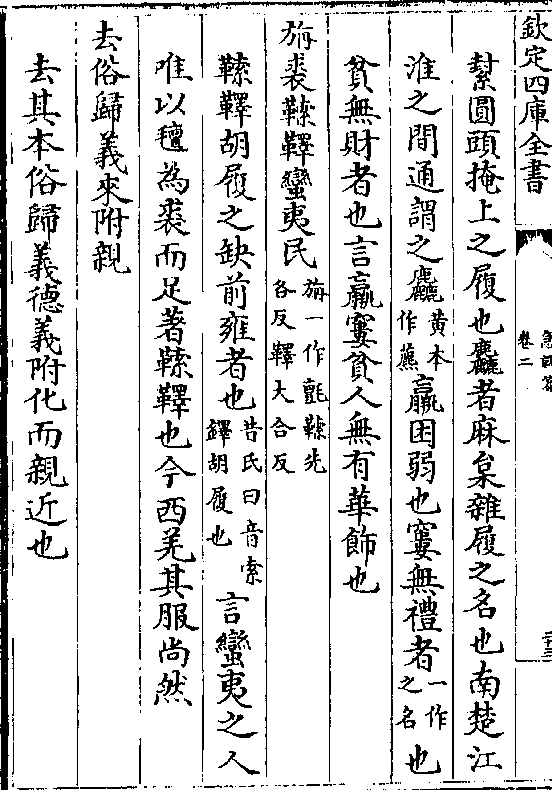 欽定四庫全書
急就篇
卷二
二十三
絜圓頭掩上之履也麤者麻枲雜履之名也南楚江
淮之間通謂之麤黃本作蔍羸困弱也窶無禮者一作之名也
貧無財者也言羸窶貧人無有華飾也
旃裘䩞鞮蠻夷民旃一作氈䩞先各反鞮大合反
䩞鞮胡履之缺前雍者也昔氏曰音索鐸胡履也言蠻夷之人
唯以氊為裘而足著䩞鞮也今西羌其服尚然
去俗歸義來附親
去其本俗歸義德義附化而親近也